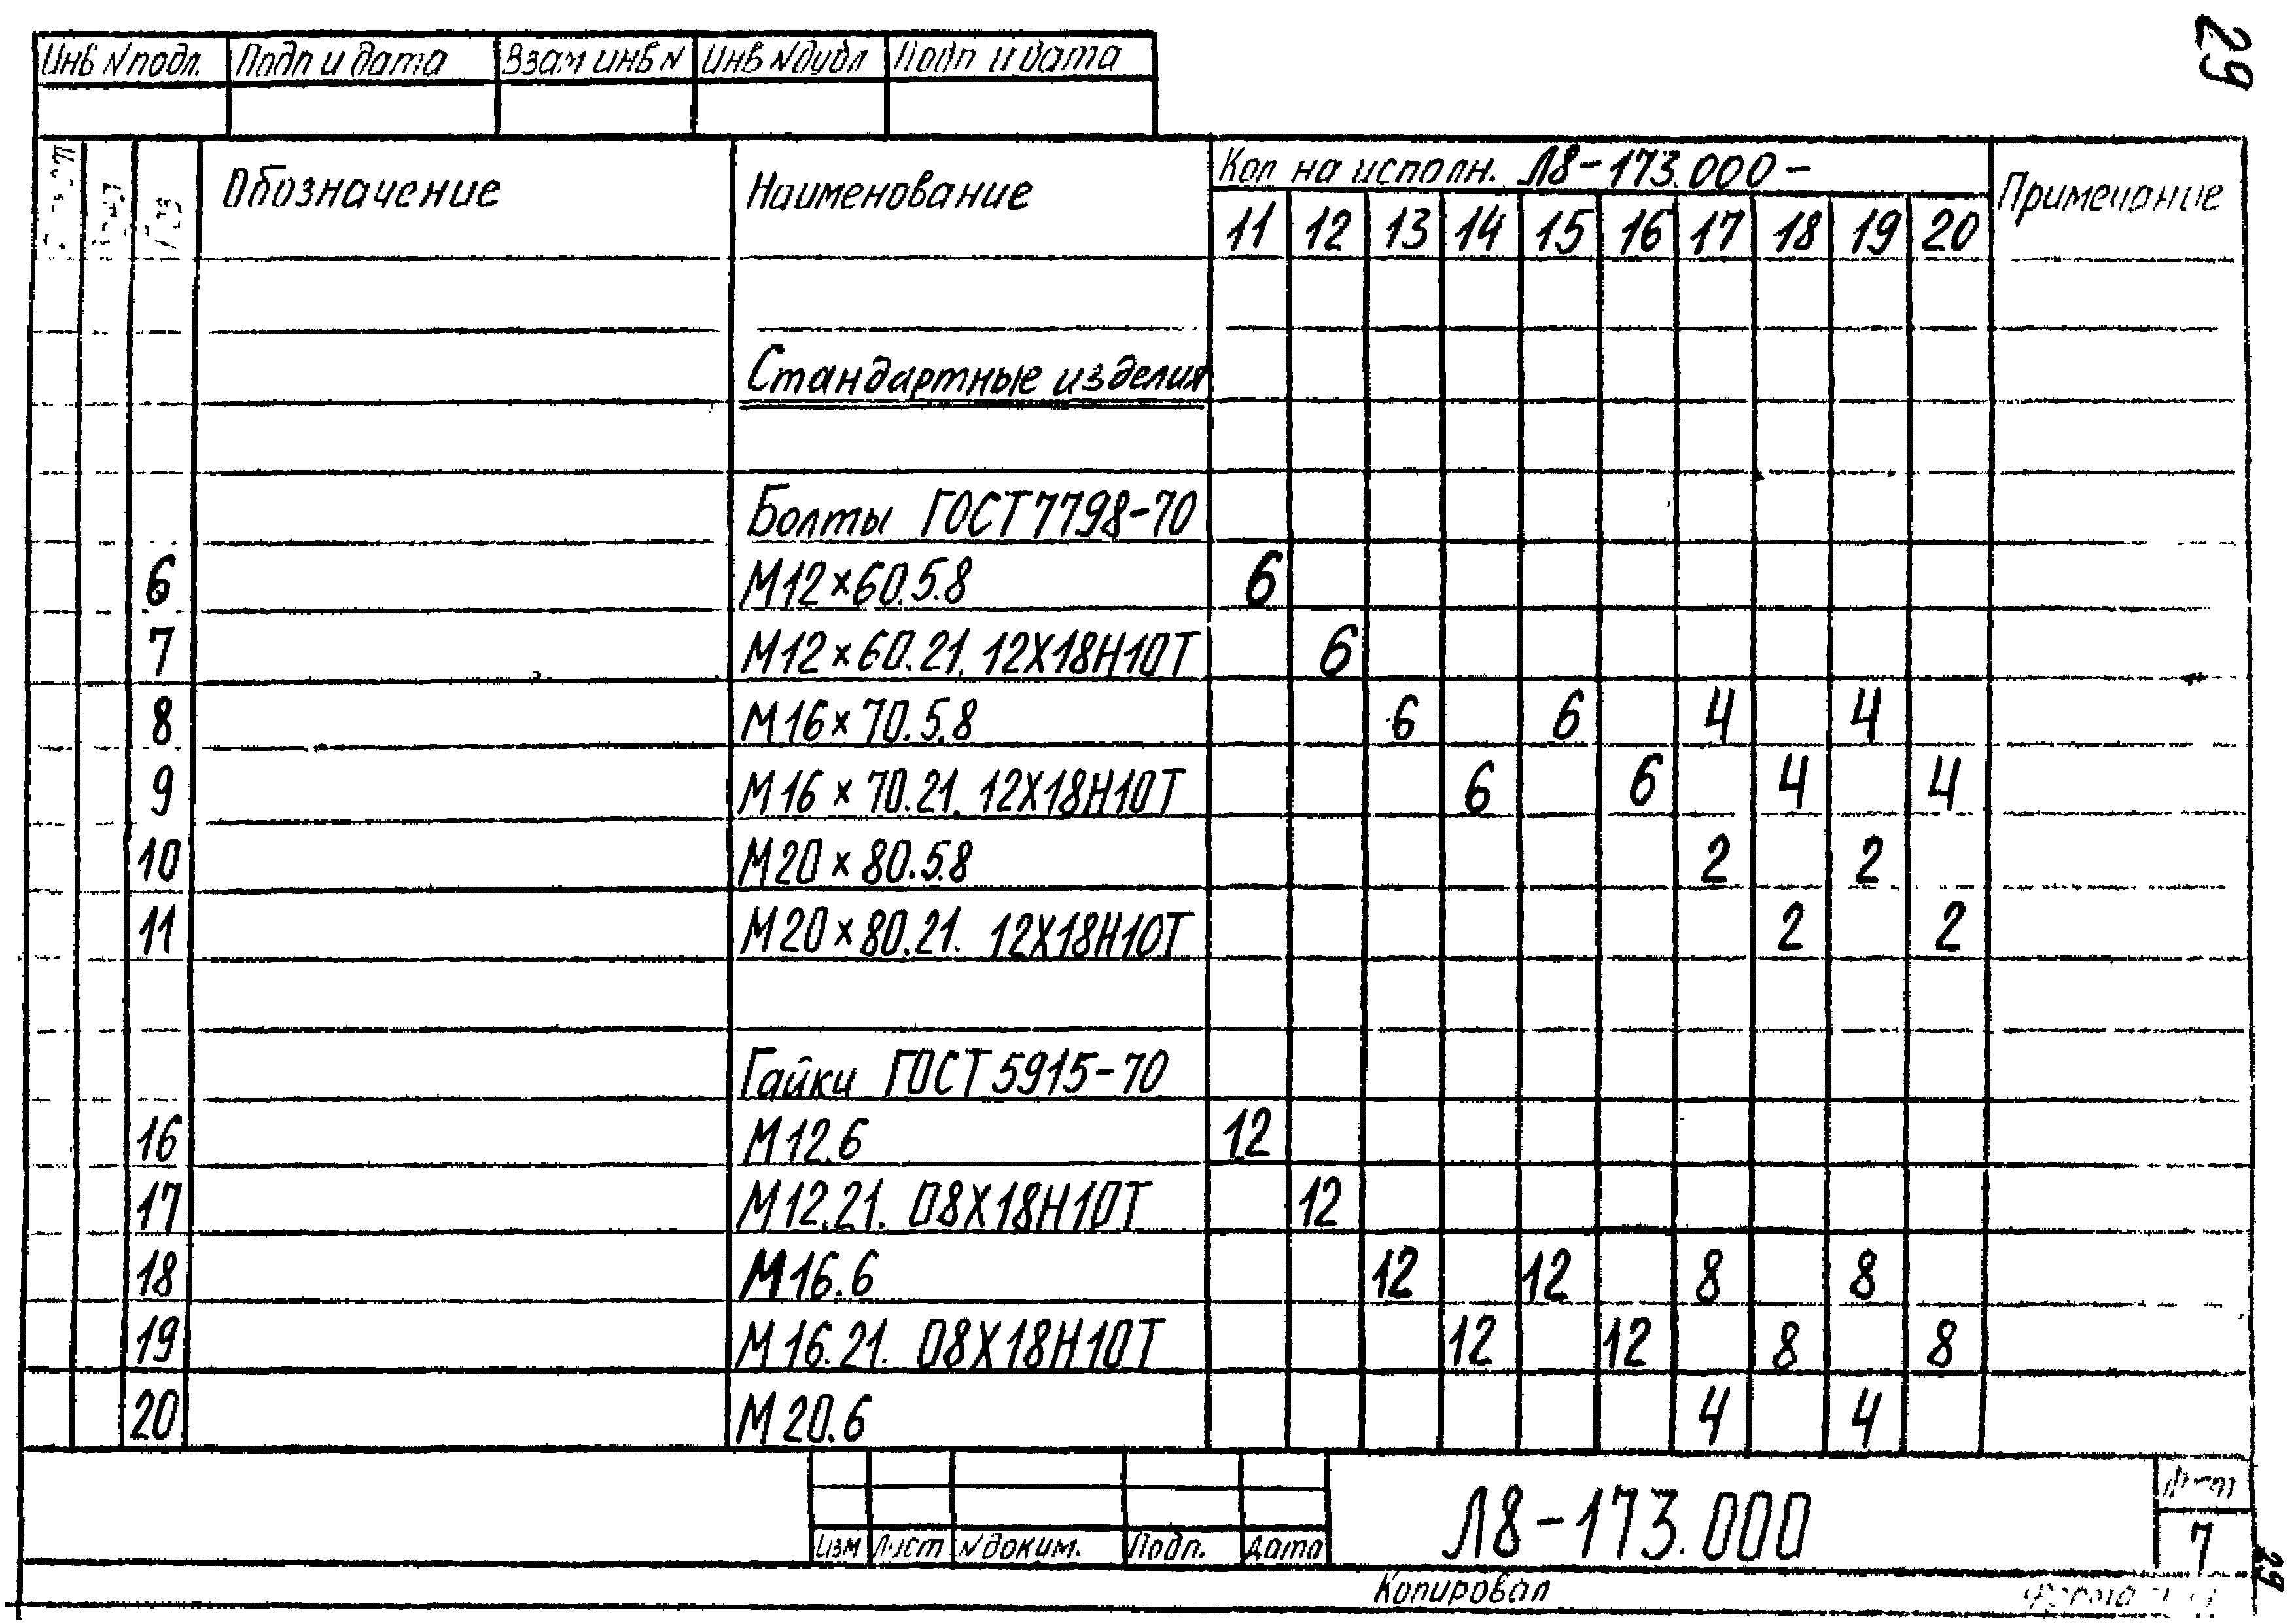 29
Инв N подл. Подп и дата Взам инв N Инв N дубл Подп и дата
Обозначение Наименование Кол на исполн. Л8-173.000- Примечание
11 12 13 14 15 16 17 18 19 20
Стандартные изделия
Болты ГОСТ 7798-70
6 М12×60.5.8 6
7 М12×60.21.12Х18Н10Т 6
8 М16×70.5.8 6 6 4 4
9 М16×70.21.12Х18Н10Т 6 6 4 4
10 М20×80.5.8 2 2
11 М20×80.21. 12Х18Н10Т 2 2
Гайки ГОСТ 5915-70
16 М12.6 12
17 М12.21. 08Х18Н10Т 12
18 М16.6 12 12 8 8
19 М16.21. 08Х18Н10Т 12 12 8 8
20 М20.6 4 4
Изм Лист N доким. Подп. Дата
Л8-173.000
Лист
7
Копировал
29